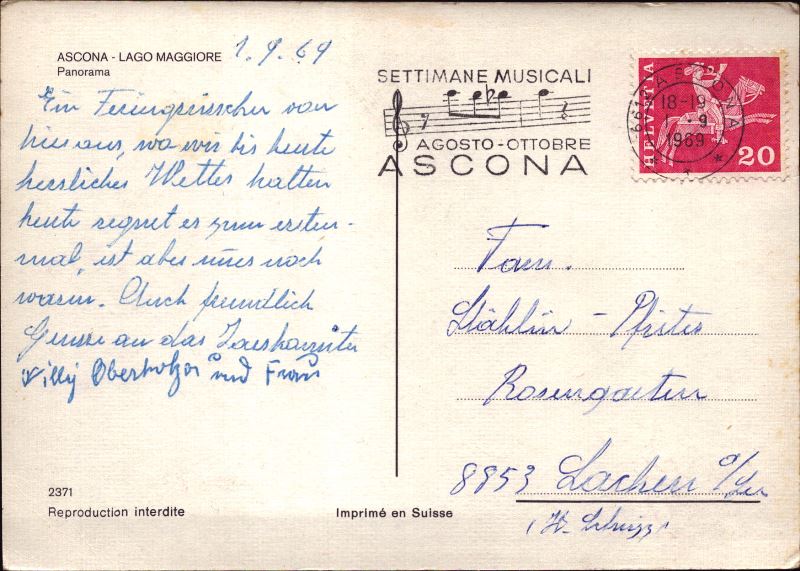 ASCONA - LAGO MAGGIORE 1.9.69
Panorama
Ein von
hier aus, wo wir bis heute
herrliches Wetter hatten
heute regnet es zum ersten-
mal, ist aber immer noch
warm. Auch freundlich
Grüsse an das
Willy Oberholzer und Frau
2371
Reproduction interdite
Imprimé en Suisse
SETTIMANE MUSICALI
AGOSTO - OTTOBRE
ASCONA
HELVETIA
20
6612 ASCONA
18-19
1.-9
1969
Fam.
Stählin - Pfister
Rosengarten
8853 Lachen a/See
(Kt. Schwyz)